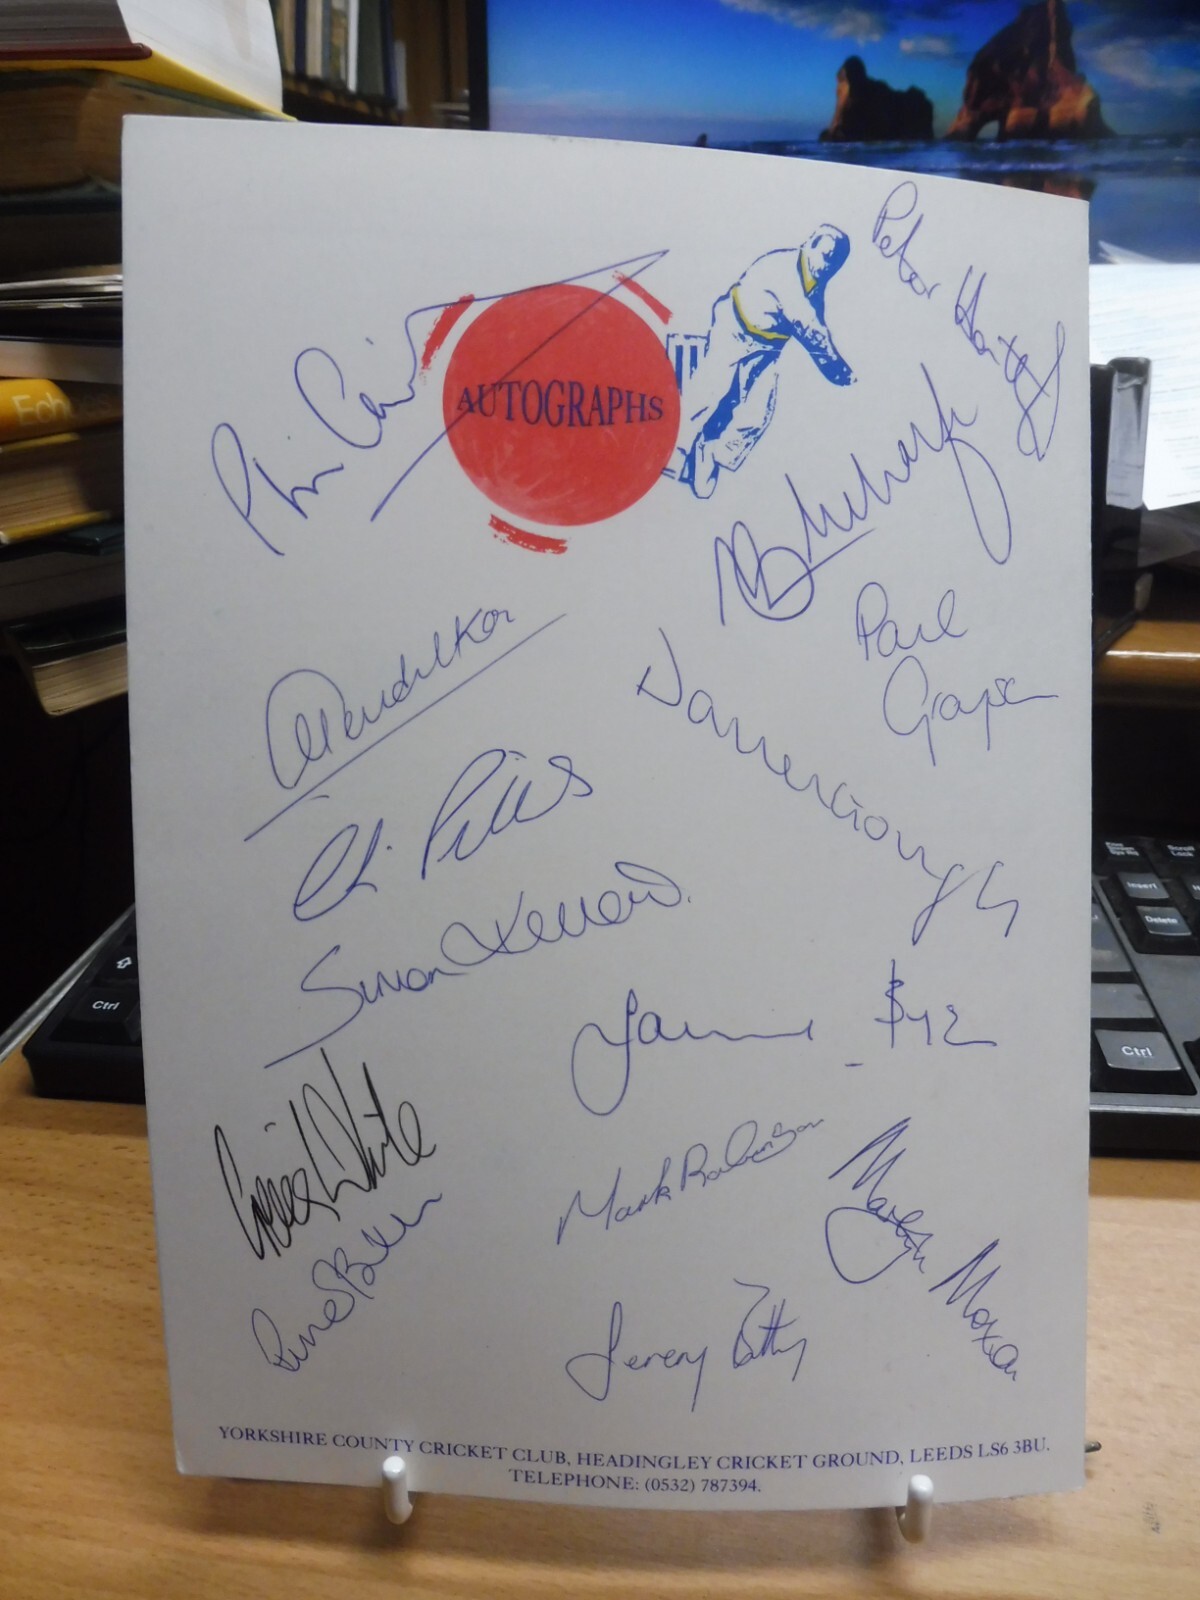 AUTOGRAPHS
Peter Hartley
Phil Carrick
Paul
Grayson
Tendulkar
Darren Gough
Simon Kellett
Craig White
Mark Robinson
Martyn Moxon
Jeremy Batty
YORKSHIRE COUNTY CRICKET CLUB, HEADINGLEY CRICKET GROUND, LEEDS LS6 3BU.
TELEPHONE: (0532) 787394.
Ctrl
Insert
Delete
Scroll
Lock
Ctrl